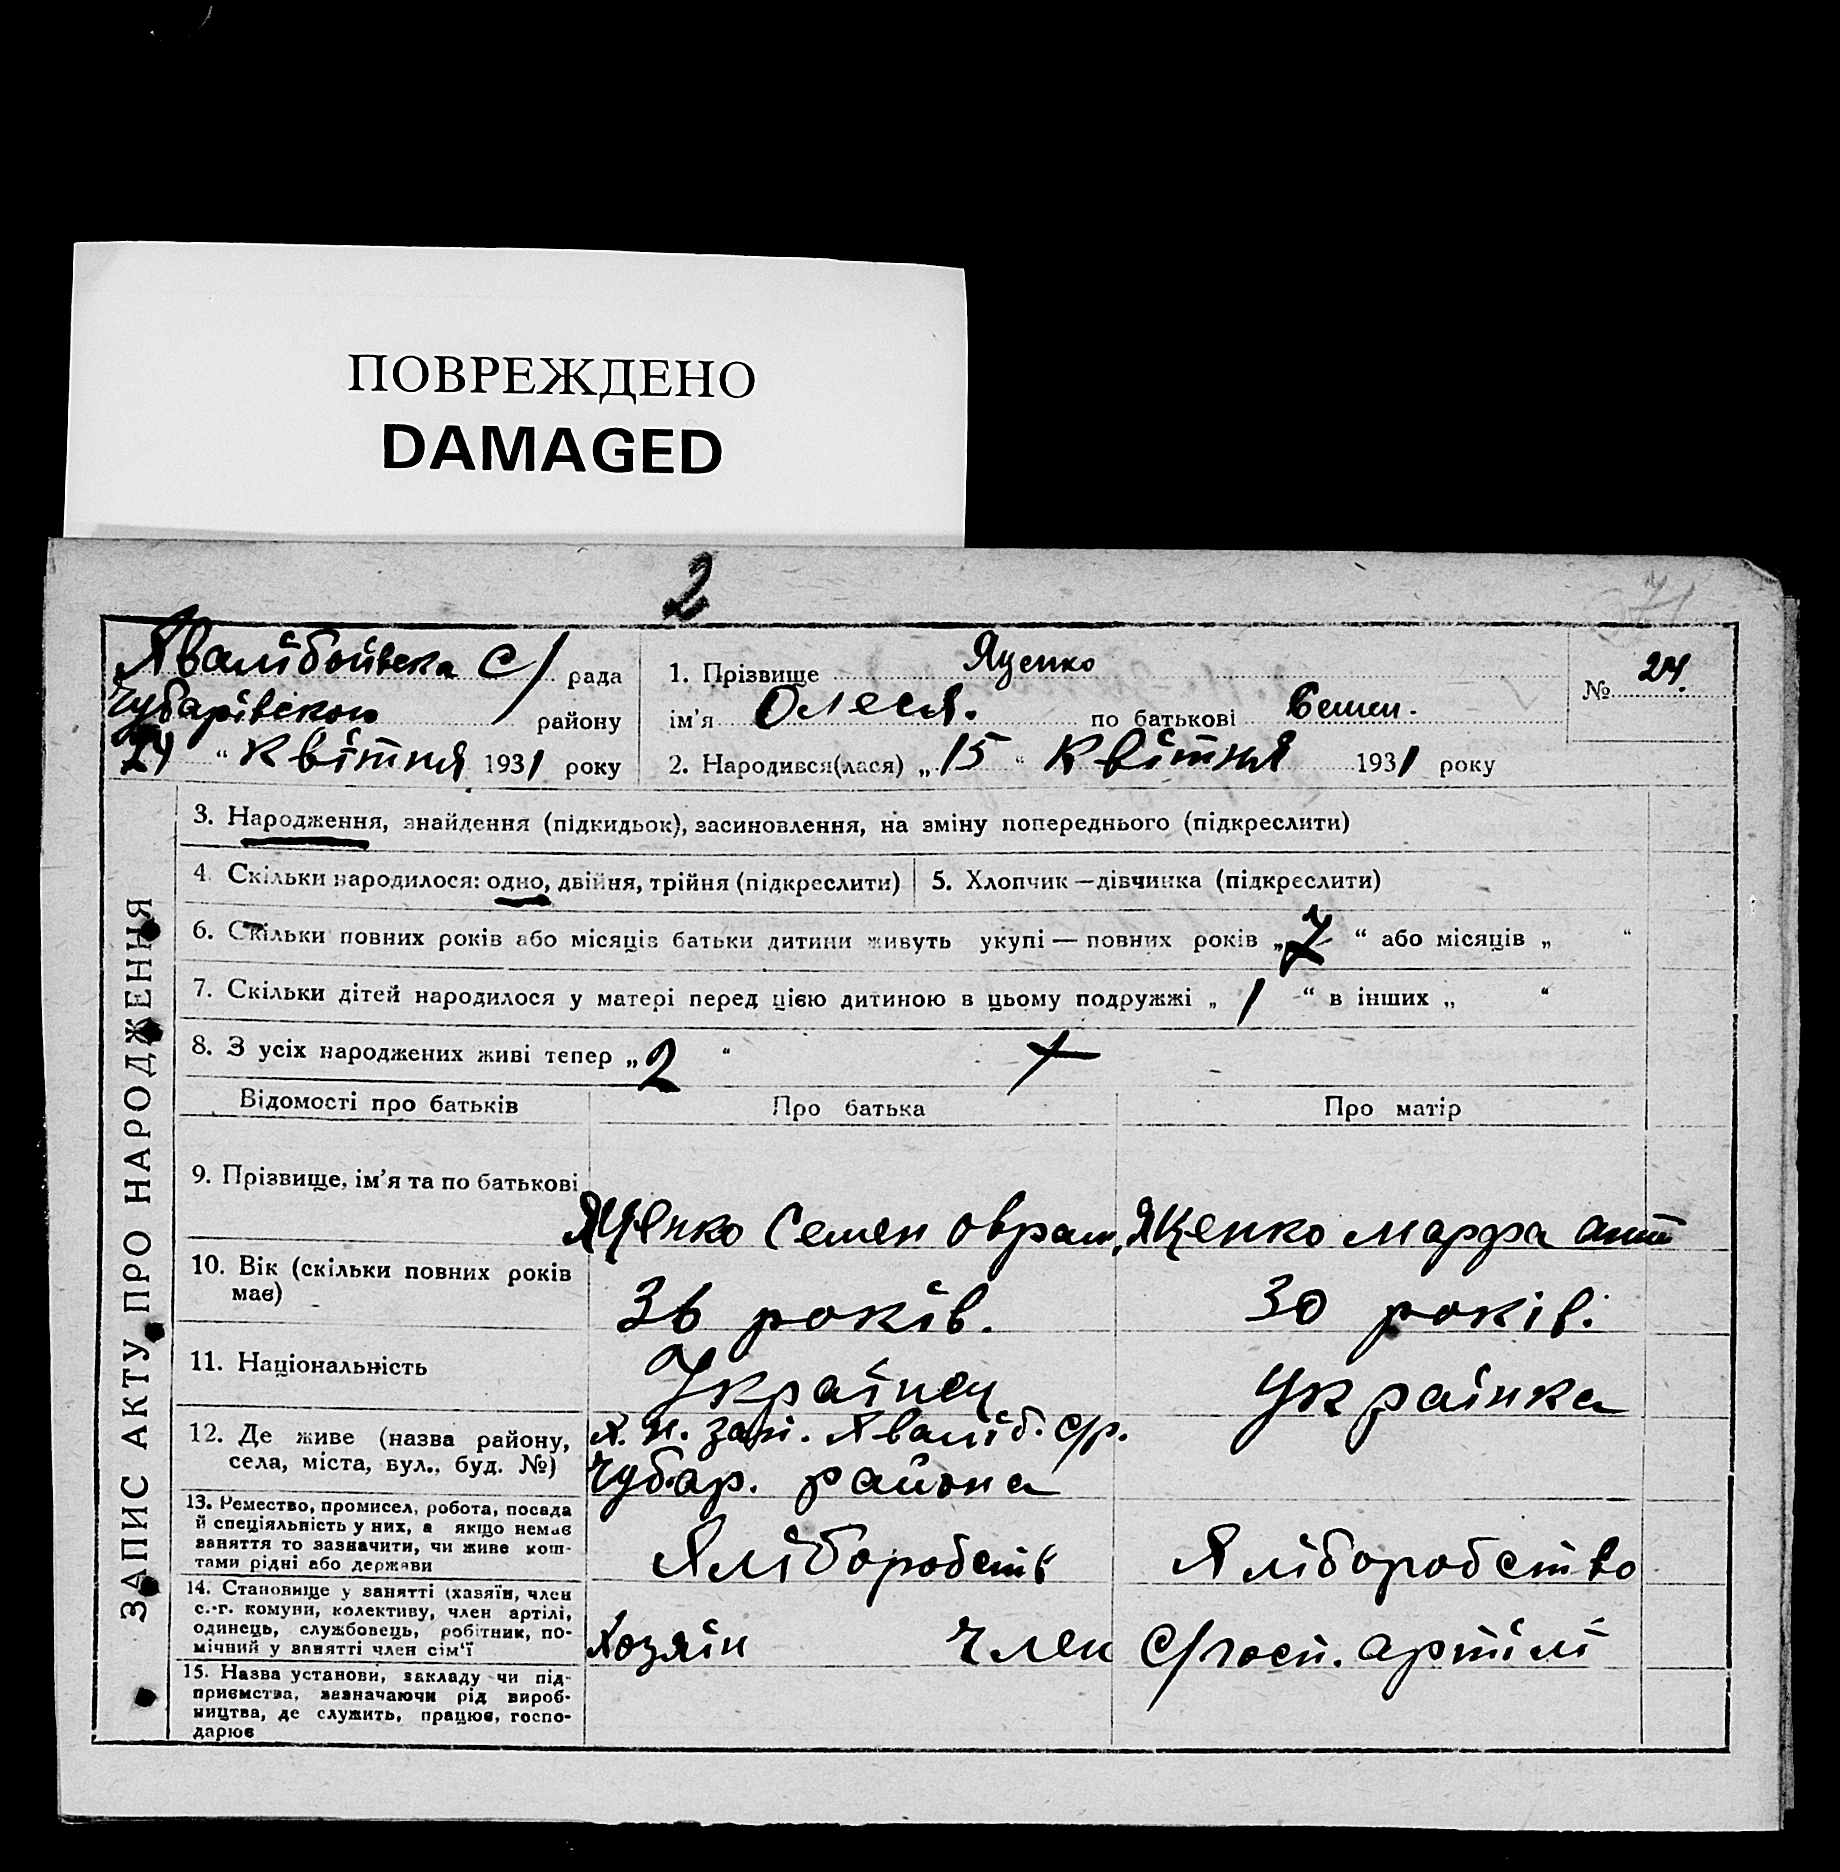 ПОВРЕЖДЕНО
DAMAGED
2
71
Явлібоївска С/ рада
Чубарівського району
24 " Квітня 1931 року
1. Прізвище Яценко
ім'я Олеся. по батькові Семен.
№ 24.
2. Народився(лася) „ 15 " Квітня 1931 року
ЗАПИС АКТУ ПРО НАРОДЖЕННЯ
3. Народження, знайдення (підкидьок), засиновлення, на зміну попереднього (підкреслити)
4. Скільки народилося: одно, двійня, трійня (підкреслити)
5. Хлопчик—дівчинка (підкреслити)
6. Скільки повних років або місяців батьки дитини живуть укупі — повних років „ 7 “ або місяців „ “
7. Скільки дітей народилося у матері перед цією дитиною в цьому подружжі „ 1 “ в інших „ “
8. З усіх народжених живі тепер „ 2 “
Відомості про батьків
Про батька
Про матір
9. Прізвище, ім'я та по батькові
Яценко Семен Оврам.
Яценко Марфа Ант
10. Вік (скільки повних років має)
36 років.
30 років.
11. Національність
Українец
Українка
12. Де живе (назва району,
села, міста, вул., буд. №)
Чубар. района
13. Ремество, промисел, робота, посада
й спеціяльність у них, а якщо немає
заняття то зазначити, чи живе кош-
тами рідні або держави
Хліборобств
Хліборобство
14. Становище у занятті (хазяїн, член
с.-г. комуни, колективу, член артілі,
одинець, службовець, робітник, по-
мічний у занятті член сім'ї
Хозяїн
Член С/госп. артілі
15. Назва установи, закладу чи під-
приємства, зазначаючи рід вироб-
ництва, де служить, працює, госпо-
дарює